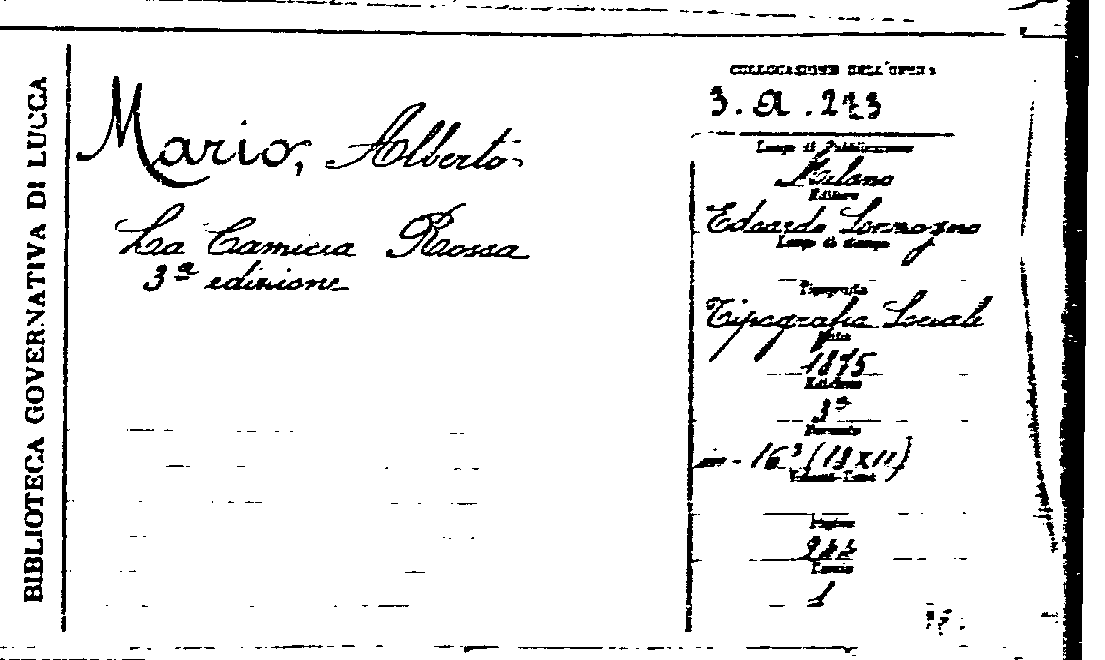 BIBLIOTECA GOVERNATIVA DI LUCCA
Mario, Alberto
La Camicia Rossa
3ª edizione
COLLOCAZIONE DELL'OPERA
3. a. 273
Luogo di Pubblicazione
Milano
Editore
Edoardo Sonzogno
Luogo di stampa
Tipografia
Tipografia Sociale
Data
1875
Edizione
3ª
Formato
in-16° (18x11)
Pagine
244
1